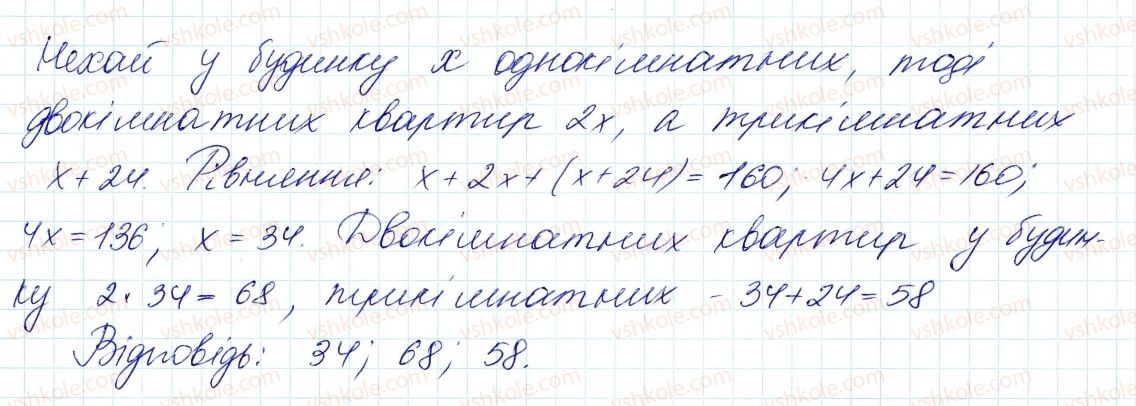 Нехай у будинку x однокімнатних, тоді
двокімнатних квартир 2x, а трикімнатних
x + 24. Рівняння: x + 2x + (x + 24) = 160; 4x + 24 = 160;
4x = 136; x = 34. Двокімнатних квартир у будин-
ку 2 · 34 = 68, трикімнатних – 34 + 24 = 58
Відповідь: 34; 68; 58.